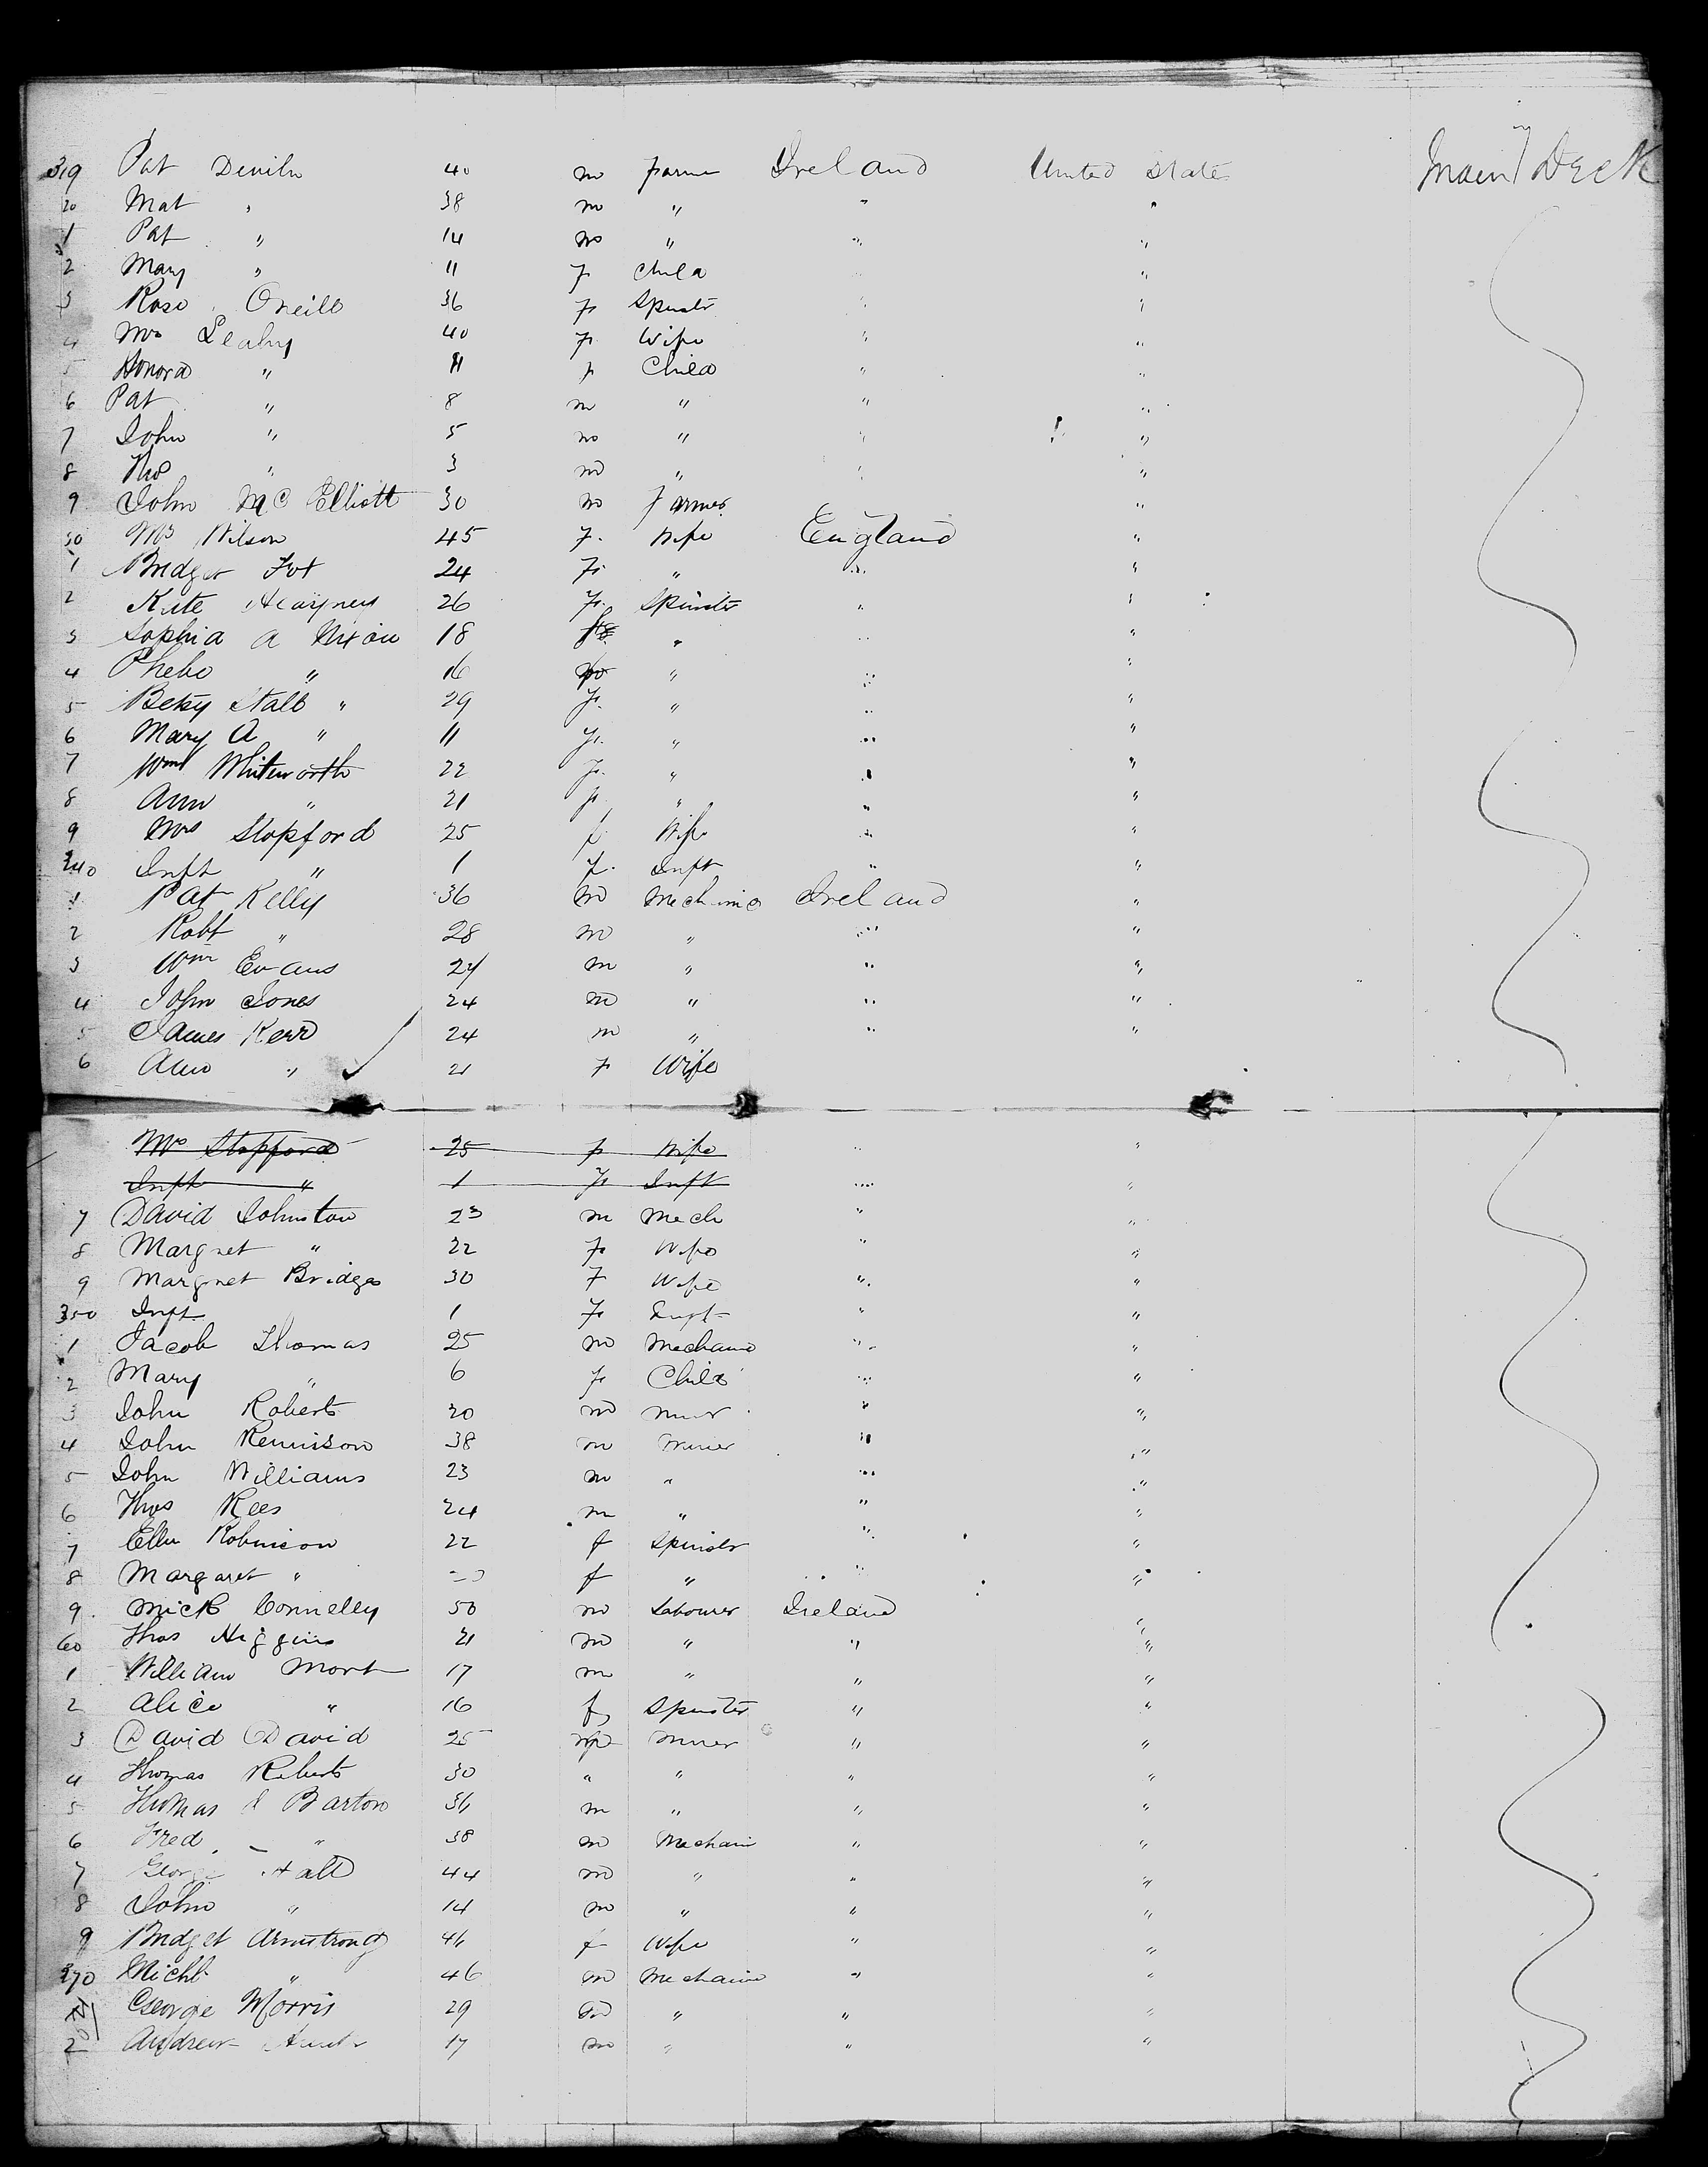 319 Pat Deviln 40 m farme Ireland United State Main Deck
20 Mat " 38 m " " "
1 Pat " 14 m " " "
2 Mary " 11 f Child " "
3 Rose Oneill 36 f Spinstr " "
4 Mrs Leahy 40 f Wife " "
5 Honora " 11 f Child " "
6 Pat " 8 m " " "
7 John " 5 m " " "
8 Tho " 3 m " " "
9 John Mc Elliott 30 m Farmer "
30 Mrs Wilson 45 F Wife England "
1 Bridget Fox 24 F " " "
2 Kate 26 F. Spinster " "
3 Sophia A Nixon 18 " " "
4 Phebe " 16 " " "
5 Betsy Stall " 29 F. " " "
6 Mary A " 11 F. " " "
7 Wm Whitworth 22 F. " " "
8 Ann " 21 f. " " "
9 Mrs Stopford 25 f Wife " "
340 Inft " 1 f. Inft " "
1 Pat Kelly 36 m Mechanic Ireland "
2 Robt " 28 m " " "
3 Wm Evans 24 m " " "
4 John Jones 24 m " " "
5 James Kerr 24 m " " "
6 Ann " 21 f Wife
Mrs Stopford 25 f Wife " "
Inft " 1 f Inft " "
7 David Johnston 23 m Mech " "
8 Margret " 22 f Wife " "
9 Margret Bridge 30 F Wife " "
350 Inft 1 F Inft " "
1 Jacob Thomas 25 m Mechanic " "
2 Mary " 6 f Child " "
3 John Roberts 20 m Miner " "
4 John Kennison 38 m Miner " "
5 John Williams 23 m " " "
6 Thos Rees 24 m " " "
7 Ellen Robinson 22 f Spinster " "
8 Margaret " f " " "
9 Mick Connelly 50 m Labourer Ireland "
60 Thos Higgins 21 m " " "
1 William Mort 17 m " " "
2 Alice " 16 f Spinster " "
3 David David 25 m Miner " "
4 Thomas Roberts 30 " " " "
5 Thomas Barton 36 m " " "
6 Fred " 38 m Mechani " "
7 George Hall 44 m " " "
8 John " 14 m " " "
9 Bridget Armstrong 46 f Wife " "
370 Michl " 46 m Mechanic " "
George Morris 29 m " " "
2 Andrew 17 m " " "